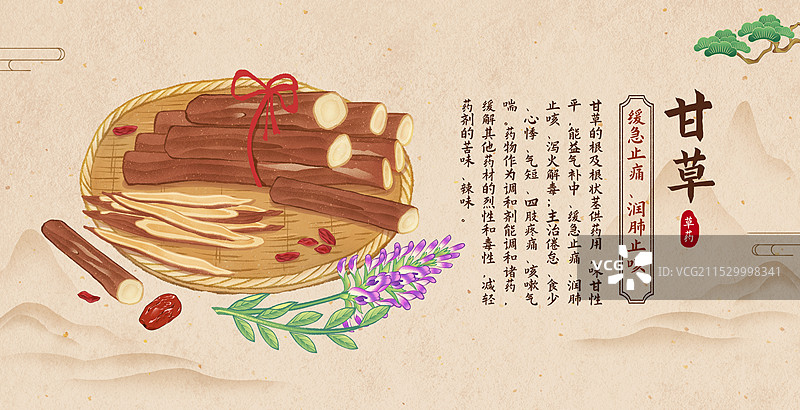 甘草
草药
缓急止痛、润肺止咳
甘草的根及根状茎供药用，味甘性
平，能益气补中、缓急止痛、润肺
止咳、泻火解毒；主治倦怠、食少
、心悸、气短、四肢疼痛、咳嗽气
喘。药物作为调和剂能调和诸药，
缓解其他药材的烈性和毒性，减轻
药剂的苦味、辣味。
VCG
VCG211529998341